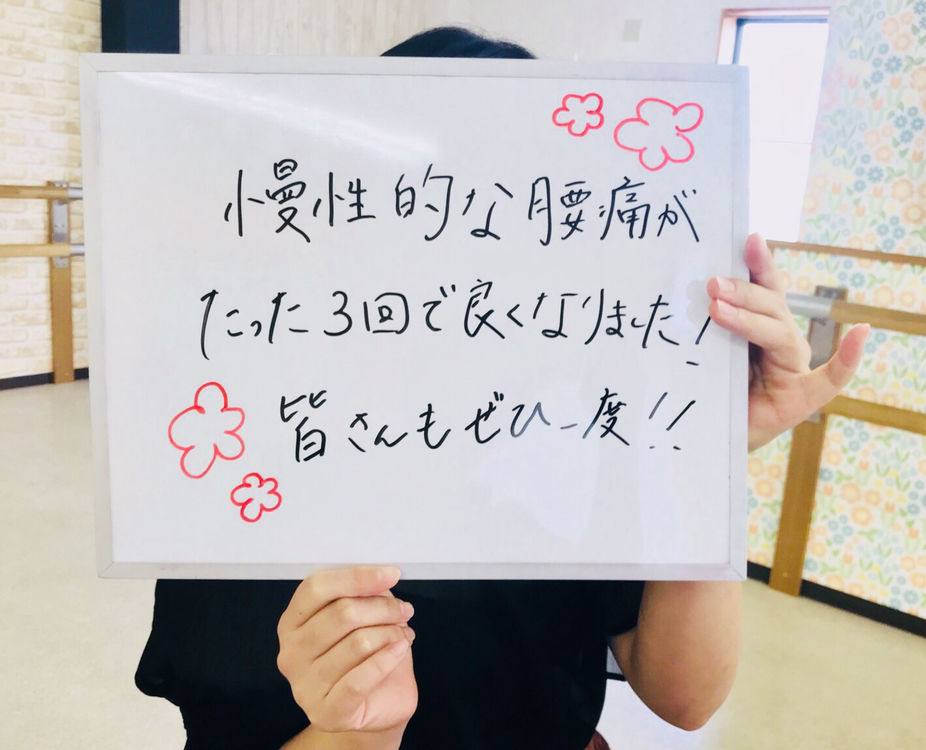 慢性的な腰痛が
たった3回で良くなりました!
皆さんもぜひ一度!!